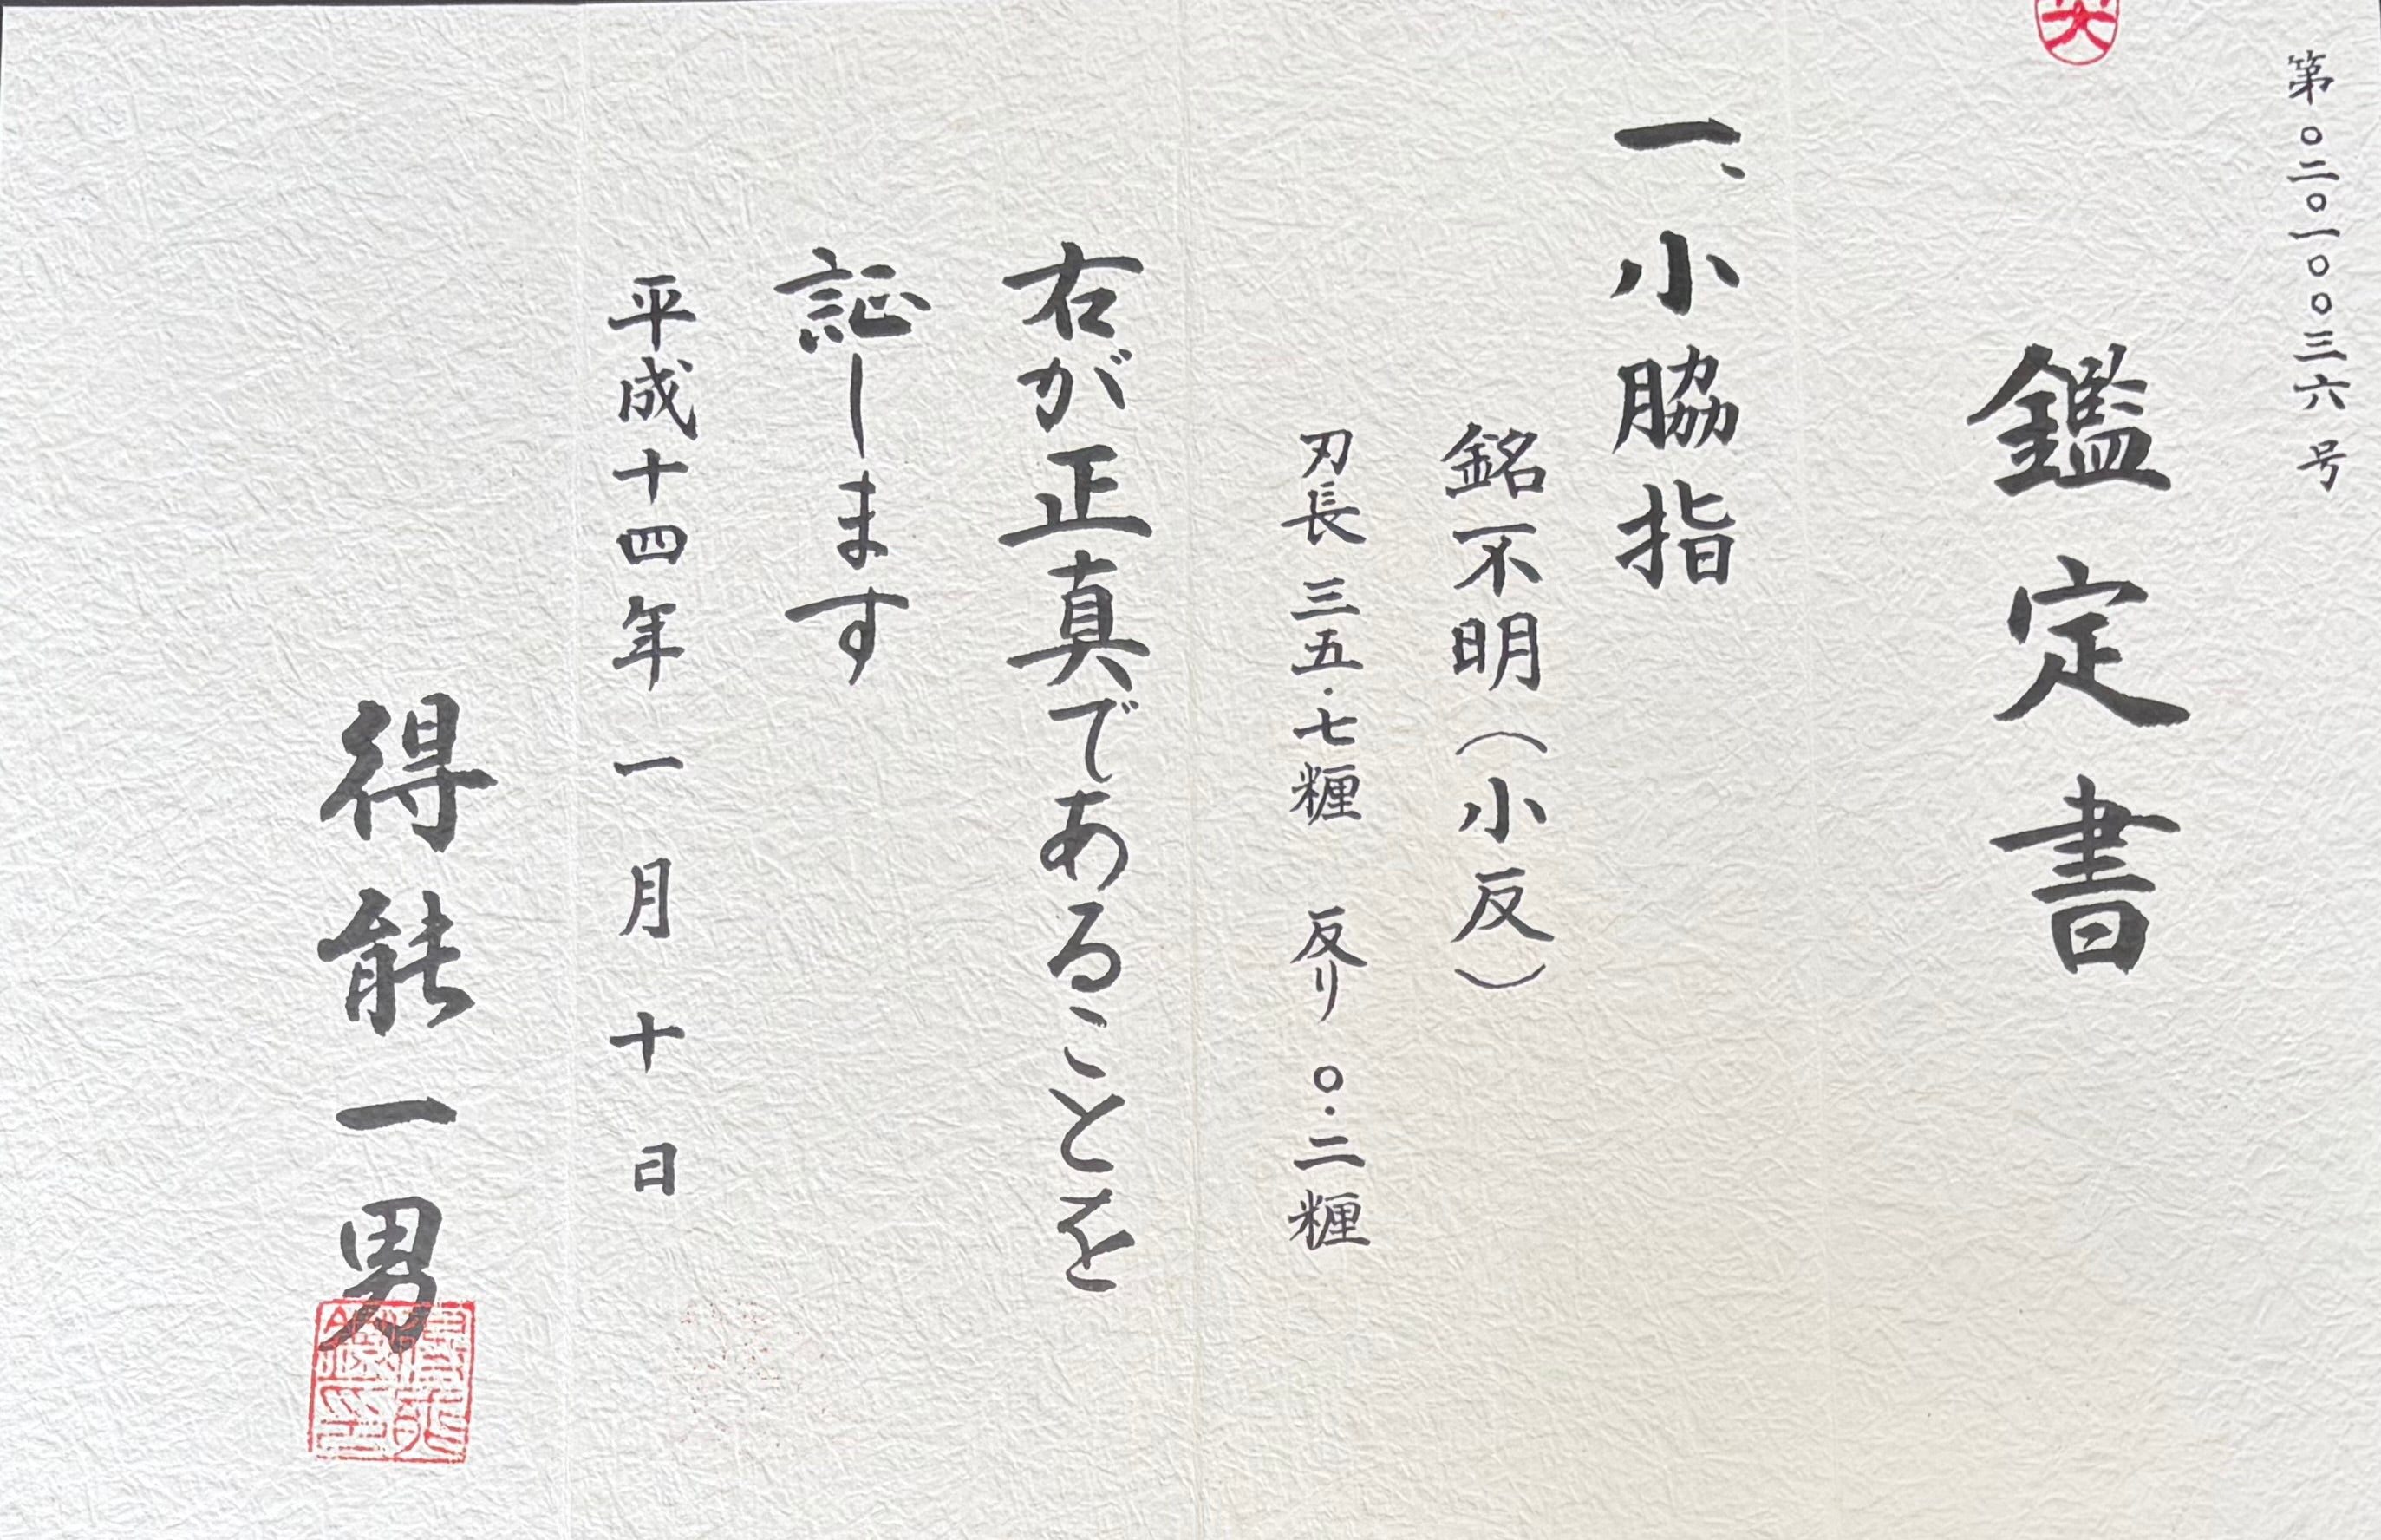 第〇二〇一〇〇三六号
鑑定書
一、小脇指
銘不明（小反）
刃長 三五・七糎 反り 〇・二糎
右が正真であることを
証します
平成十四年 一月 十日
得能一男